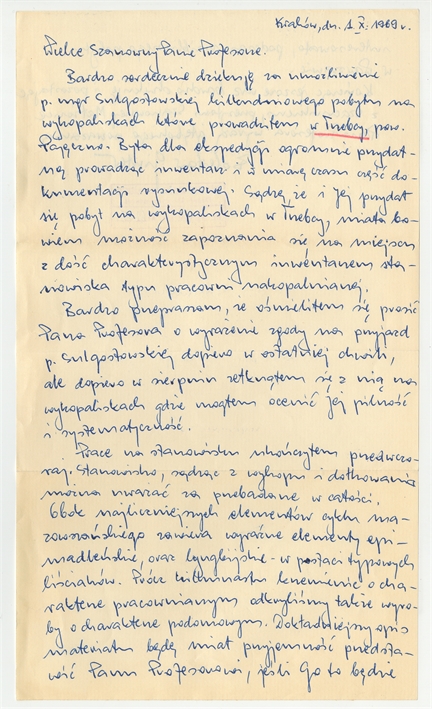 Kraków, dn. 1 X. 1969 r.
Wielce Szanowny Panie Profesorze.
Bardzo serdecznie dziękuję za umożliwienie
p. mgr Sulgostowskiej kilkudniowego pobytu na
wykopaliskach które prowadziłem w Trębcy, pow.
Pajęczno. Była dla ekspedycji ogromnie przydat-
na, prowadząc inwentarz i w miarę czasu część do-
kumentacji rysunkowej. Sądzę, że i jej przydał
się pobyt na wykopaliskach w Trębcy, miała bo-
wiem możność zapoznania się na miejscu
z dość charakterystycznym inwentarzem sta-
nowiska typu pracowni nakopalnianej.
Bardzo przepraszam, że ośmieliłem się prosić
Pana Profesora o wyrażenie zgody na przyjazd
p. Sulgostowskiej dopiero w ostatniej chwili,
ale dopiero w sierpniu zetknąłem się z nią na
wykopaliskach gdzie mogłem ocenić jej pilność
i systematyczność.
Prace na stanowisku ukończyłem przedwczo-
raj. Stanowisko, sądząc z wykopu i dotkowania
można uważać za przebadane w całości.
Obok najliczniejszych elementów cyklu ma-
zowszańskiego zawiera wyraźne elementy epi-
madleńskie, oraz lyngbijskie - w postaci typowych
liściaków. Prócz kilkunastu krzemienic o cha-
rakterze pracownianym odkryliśmy także wyro-
by o charakterze podomowym. Dokładniejszy opis
materiału będę miał przyjemność przedsta-
wić Panu Profesorowi, jeśli Go to będzie